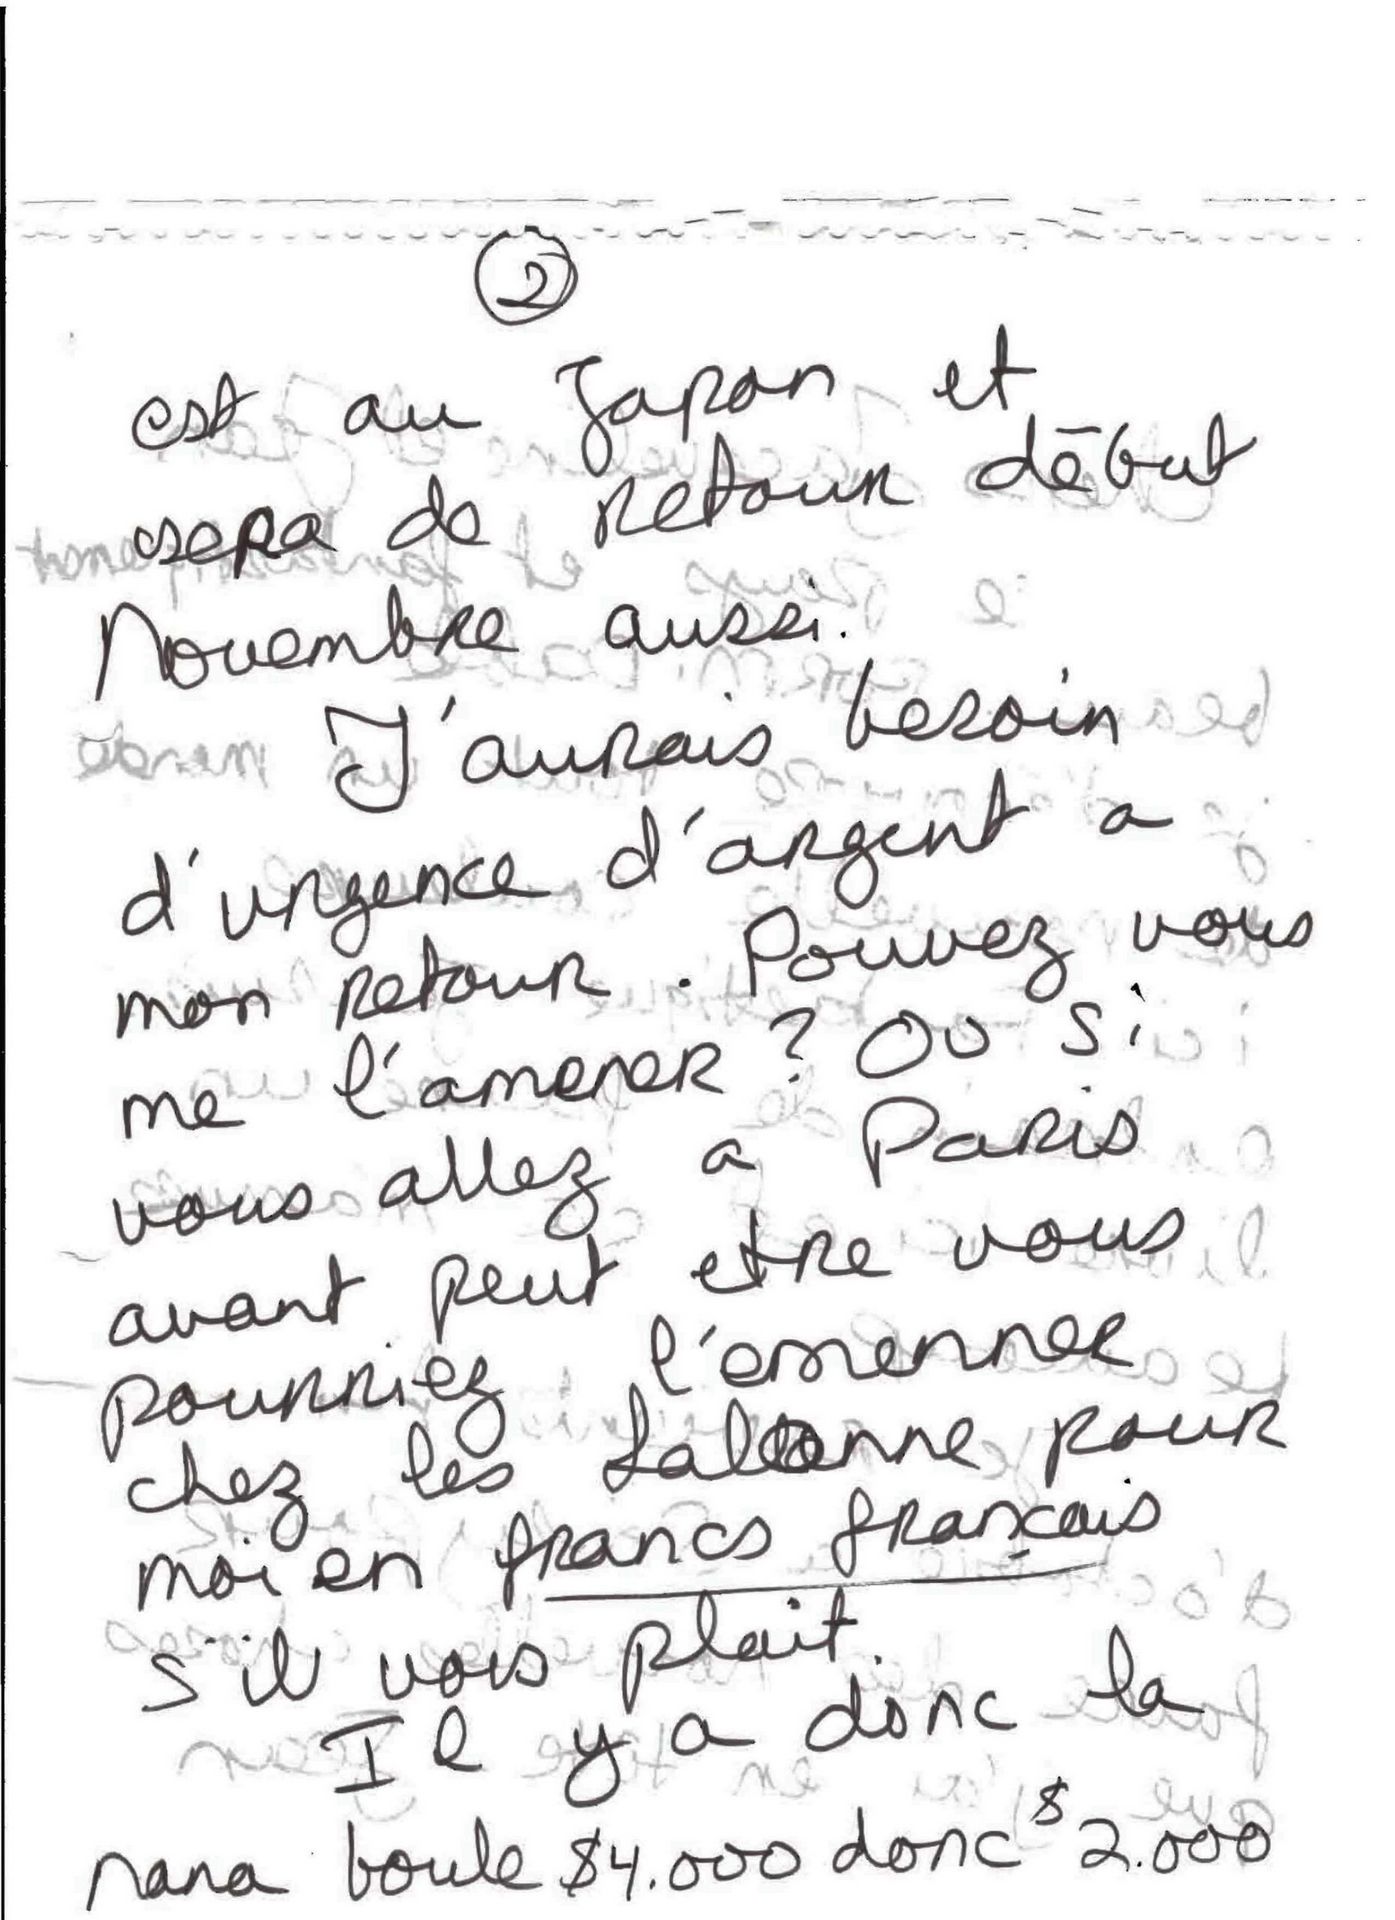 ②
est au Japon et
sera de retour début
Novembre aussi.
J'aurais besoin
d'urgence d'argent a
mon retour. Pouvez vous
me l'amener? Ou si
vous allez a Paris
avant peut etre vous
pourriez l'emenner
chez les Lalanne pour
moi en francs français
s'il vous plait.
Il y a donc la
nana boule $4.000 donc $2.000